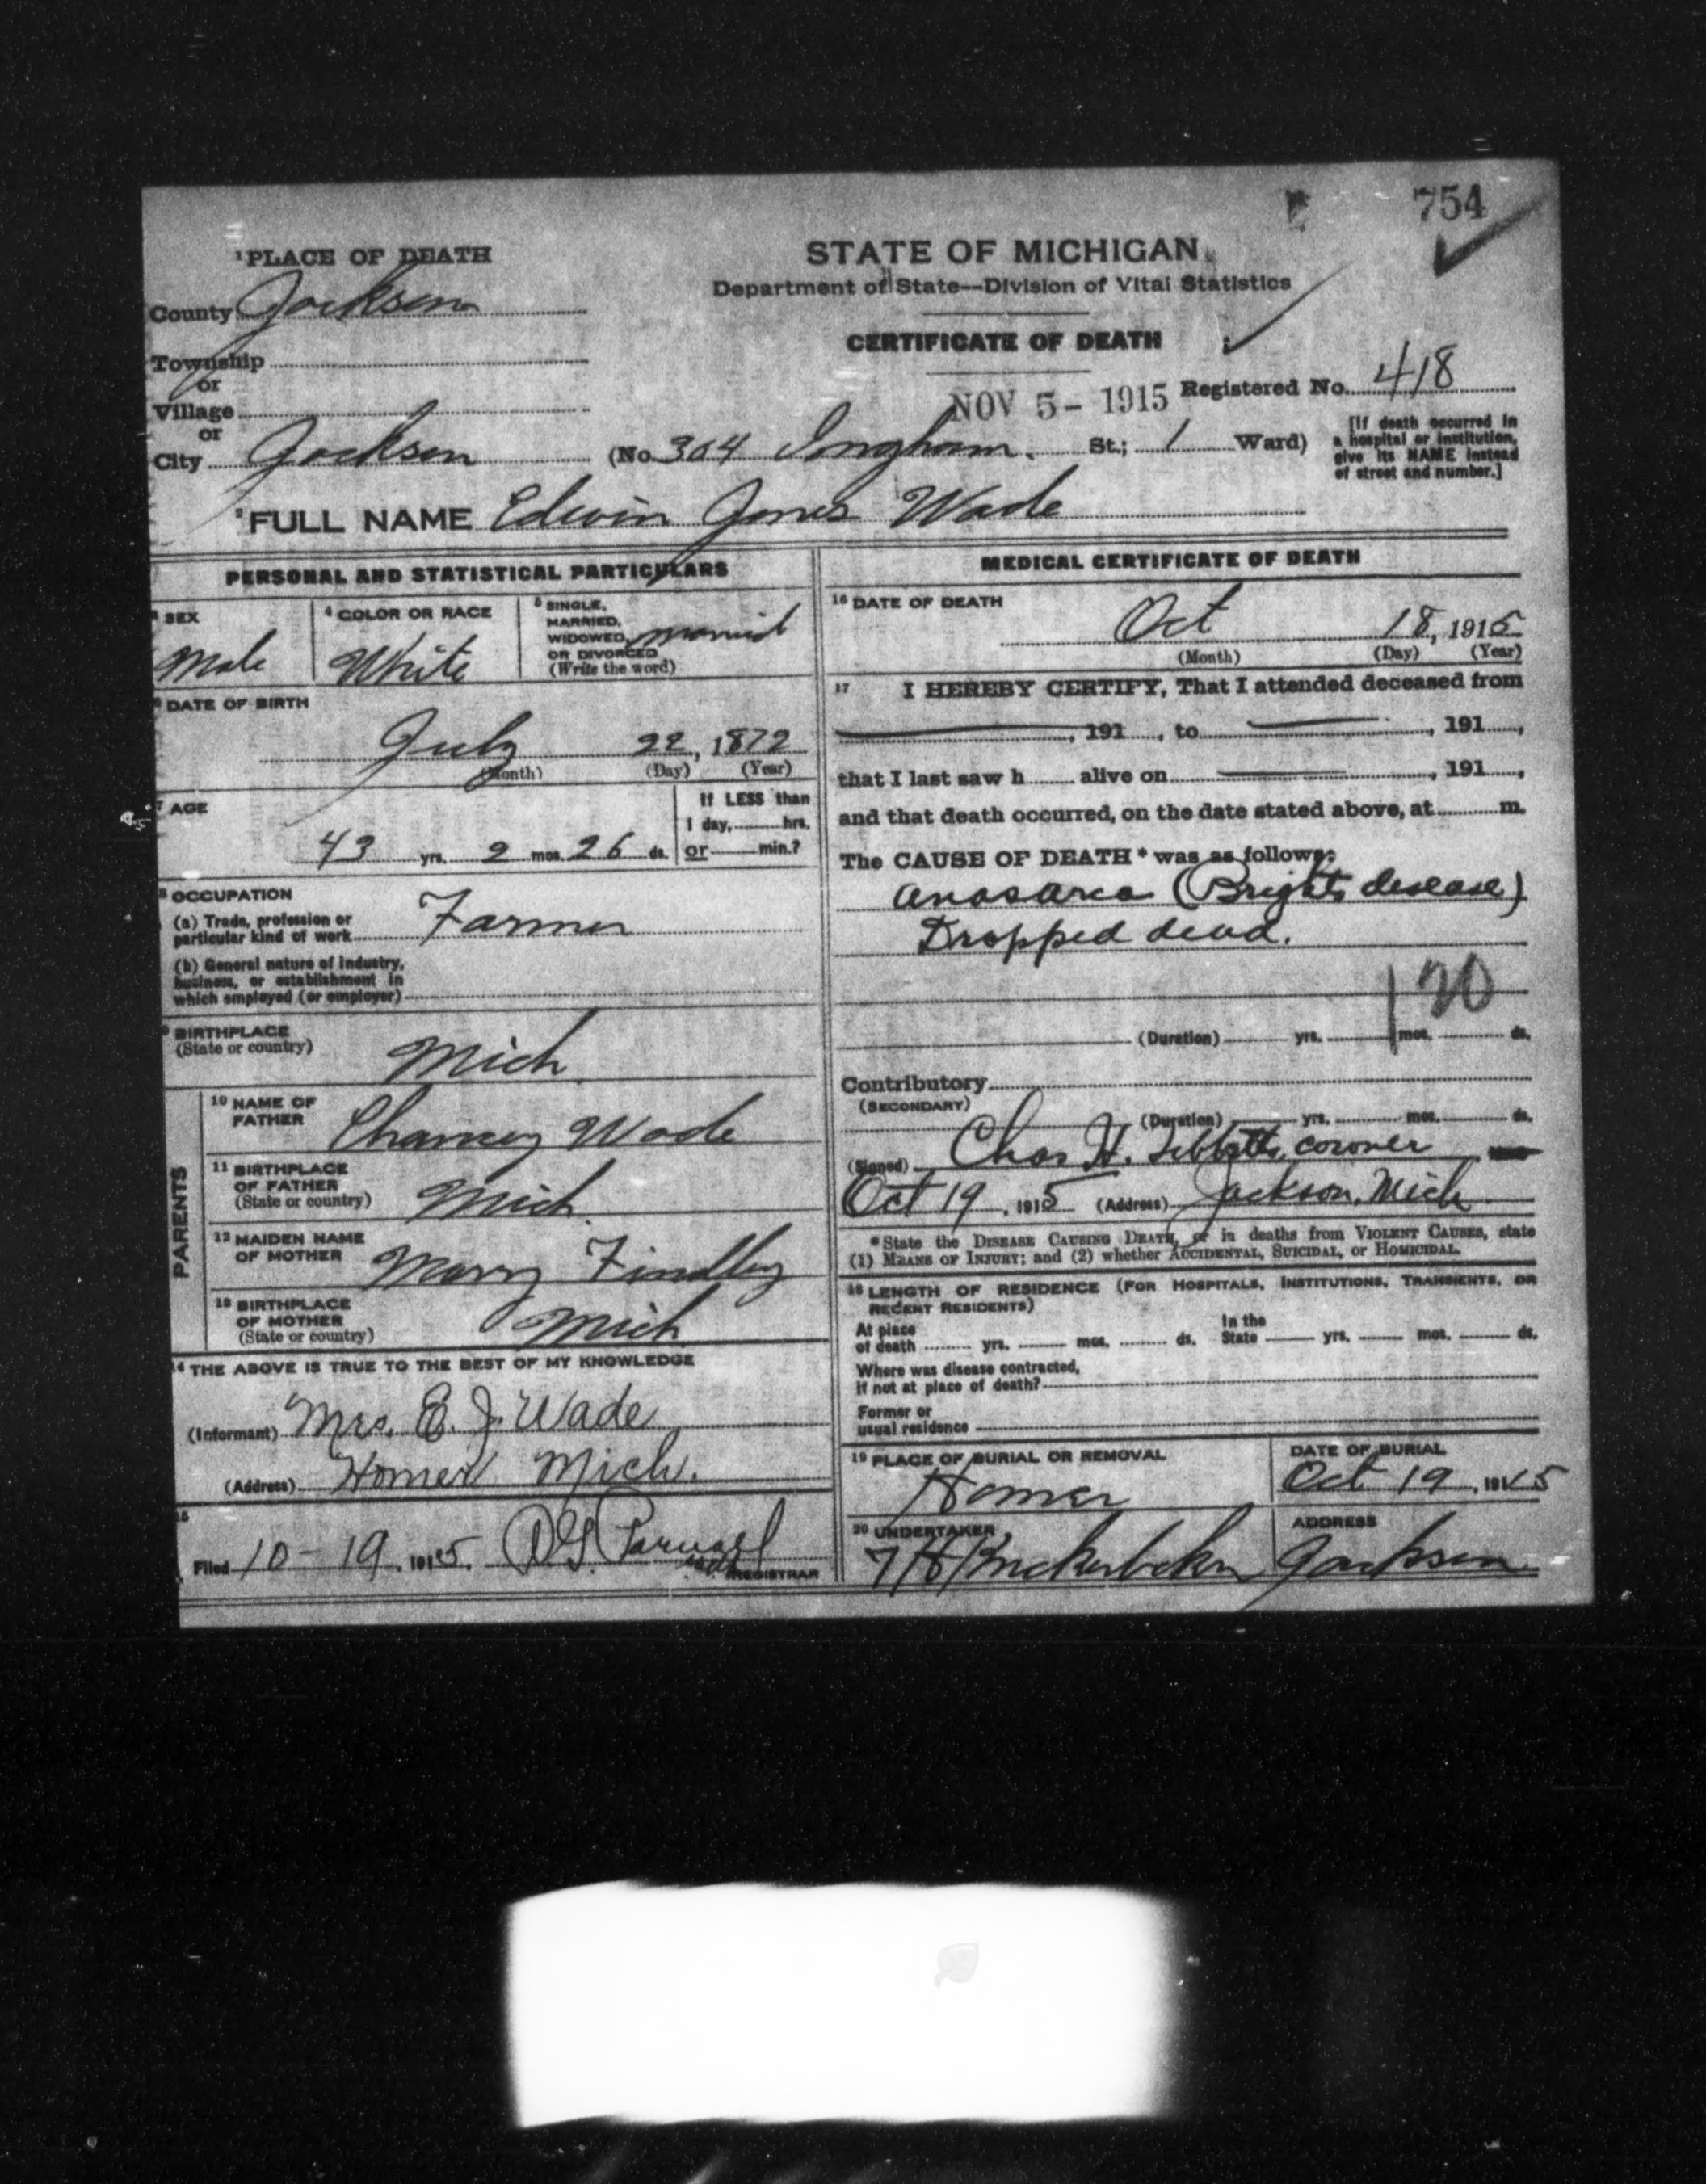 754
¹PLACE OF DEATH
County Jackson
Township
or
Village
or
City Jackson (No 304 Ingham. St.; 1 Ward)
STATE OF MICHIGAN
Department of State—Division of Vital Statistics
CERTIFICATE OF DEATH
NOV 5- 1915 Registered No. 418
[If death occurred in
a hospital or institution,
give its NAME instead
of street and number.]
²FULL NAME Edwin Jones Wade
PERSONAL AND STATISTICAL PARTICULARS
³ SEX
Male
⁴ COLOR OR RACE
White
⁵ SINGLE,
MARRIED,
WIDOWED,
OR DIVORCED
(Write the word)
married
⁶ DATE OF BIRTH
July 22, 1872
(Month) (Day) (Year)
⁷ AGE
43 yrs. 2 mos. 26 ds.
If LESS than
1 day, hrs.
or min.?
⁸ OCCUPATION
(a) Trade, profession or
particular kind of work Farmer
(b) General nature of industry,
business, or establishment in
which employed (or employer)
⁹ BIRTHPLACE
(State or country)
Mich.
PARENTS
¹⁰ NAME OF
FATHER
Chancey Wade
¹¹ BIRTHPLACE
OF FATHER
(State or country)
Mich.
¹² MAIDEN NAME
OF MOTHER
Marry Findley
¹³ BIRTHPLACE
OF MOTHER
(State or country)
Mich
¹⁴ THE ABOVE IS TRUE TO THE BEST OF MY KNOWLEDGE
(Informant) Mrs. E. J. Wade
(Address) Homer Mich.
15
Filed 10-19, 1915.
REGISTRAR
MEDICAL CERTIFICATE OF DEATH
¹⁶ DATE OF DEATH
Oct 18, 1915
(Month) (Day) (Year)
17 I HEREBY CERTIFY, That I attended deceased from
, 191 , to , 191 ,
that I last saw h alive on , 191 ,
and that death occurred, on the date stated above, at m.
The CAUSE OF DEATH* was as follows:
anasarca (Brights disease)
Dropped dead.
120
(Duration) yrs. mos. ds.
Contributory
(SECONDARY)
(Duration) yrs. mos. ds.
(Signed) Chas H. Tibbetts, coroner
Oct 19, 1915 (Address) Jackson, Mich
*State the DISEASE CAUSING DEATH, or in deaths from VIOLENT CAUSES, state
(1) MEANS OF INJURY; and (2) whether ACCIDENTAL, SUICIDAL, or HOMICIDAL.
¹⁸ LENGTH OF RESIDENCE (FOR HOSPITALS, INSTITUTIONS, TRANSIENTS, OR
RECENT RESIDENTS)
At place
of death yrs. mos. ds.
In the
State yrs. mos. ds.
Where was disease contracted,
if not at place of death?
Former or
usual residence
¹⁹ PLACE OF BURIAL OR REMOVAL
Homer
DATE OF BURIAL
Oct 19, 1915
²⁰ UNDERTAKER
Knickerbocker
ADDRESS
Jackson